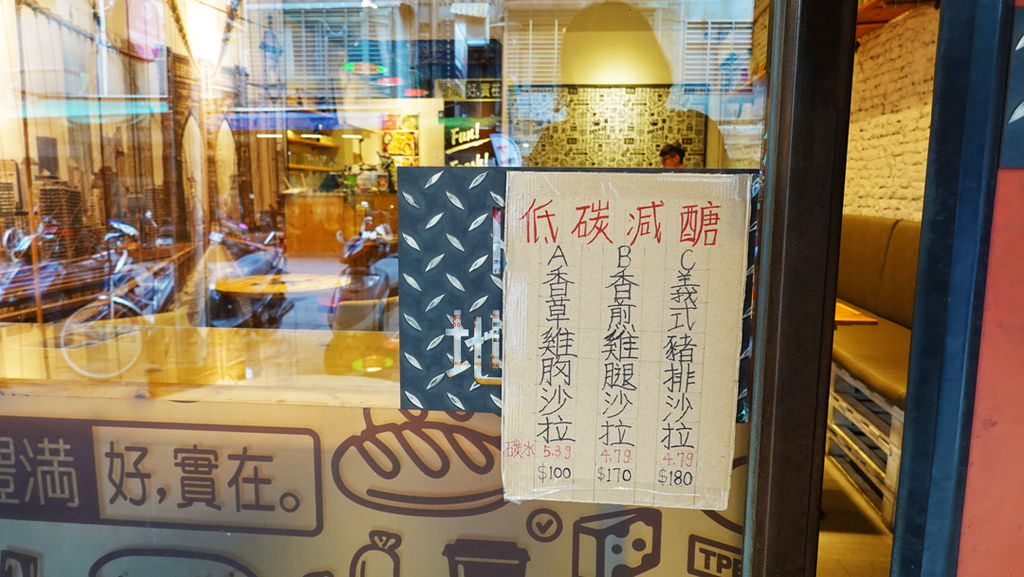 好,實在
Fun!
低碳減醣
A香草雞胸沙拉
碳水 5.3g
$100
B香煎雞腿沙拉
4.7g
$170
C義式豬排沙拉
4.7g
$180
地
豐滿 好,實在。
TPE